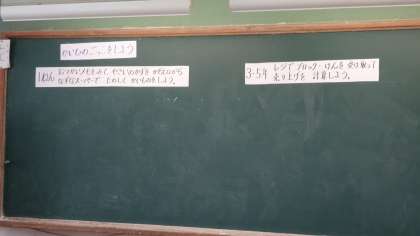 かいものごっこをしよう
1ねん おつかいメモをみて、やさいのかずを かぞえながら
なずなスーパーで たのしく かいものをしよう。
3・5年 レジで ブロック・けんを 受け取って
売り上げを 計算しよう。